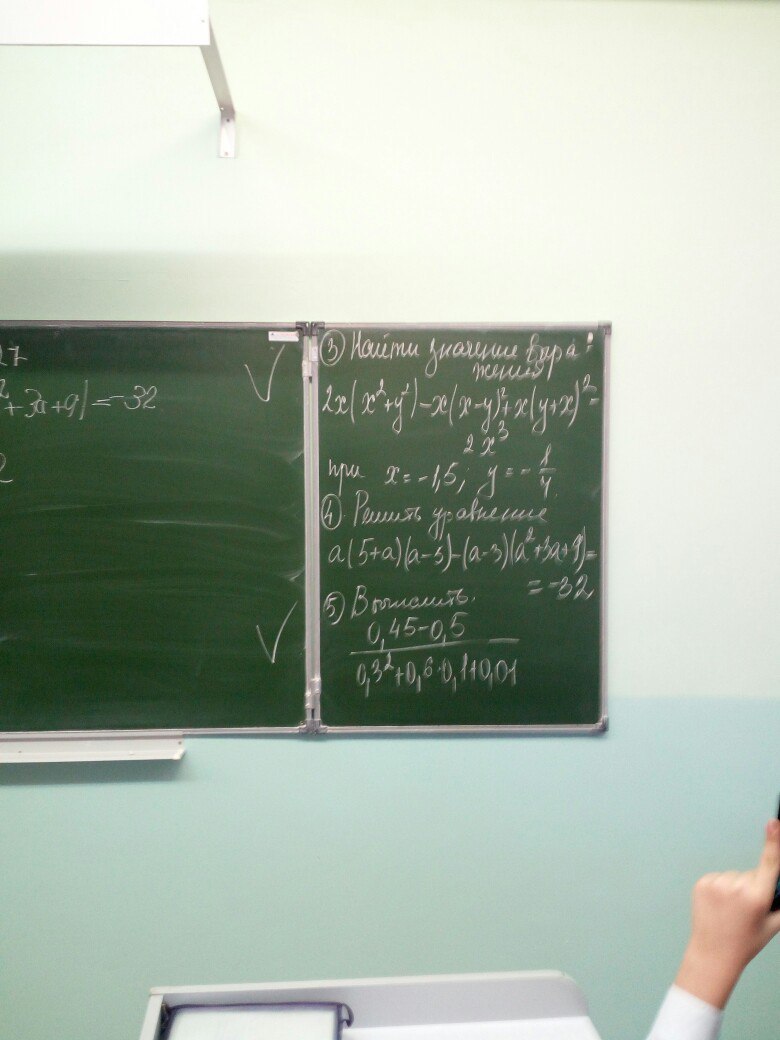 27
² + 3a + 9) = -32
2
③ Найти значение выра-
жения
2x(x²+y²)-x(x-y)²+x(y+x)²=
2x³
при x=-1,5; y=-1/4
④ Решить уравнение
a(5+a)(a-5)-(a-3)(a²+3a+9)=
=-32
⑤ Вычислить.
0,45-0,5
0,3²+0,6·0,1+0,01